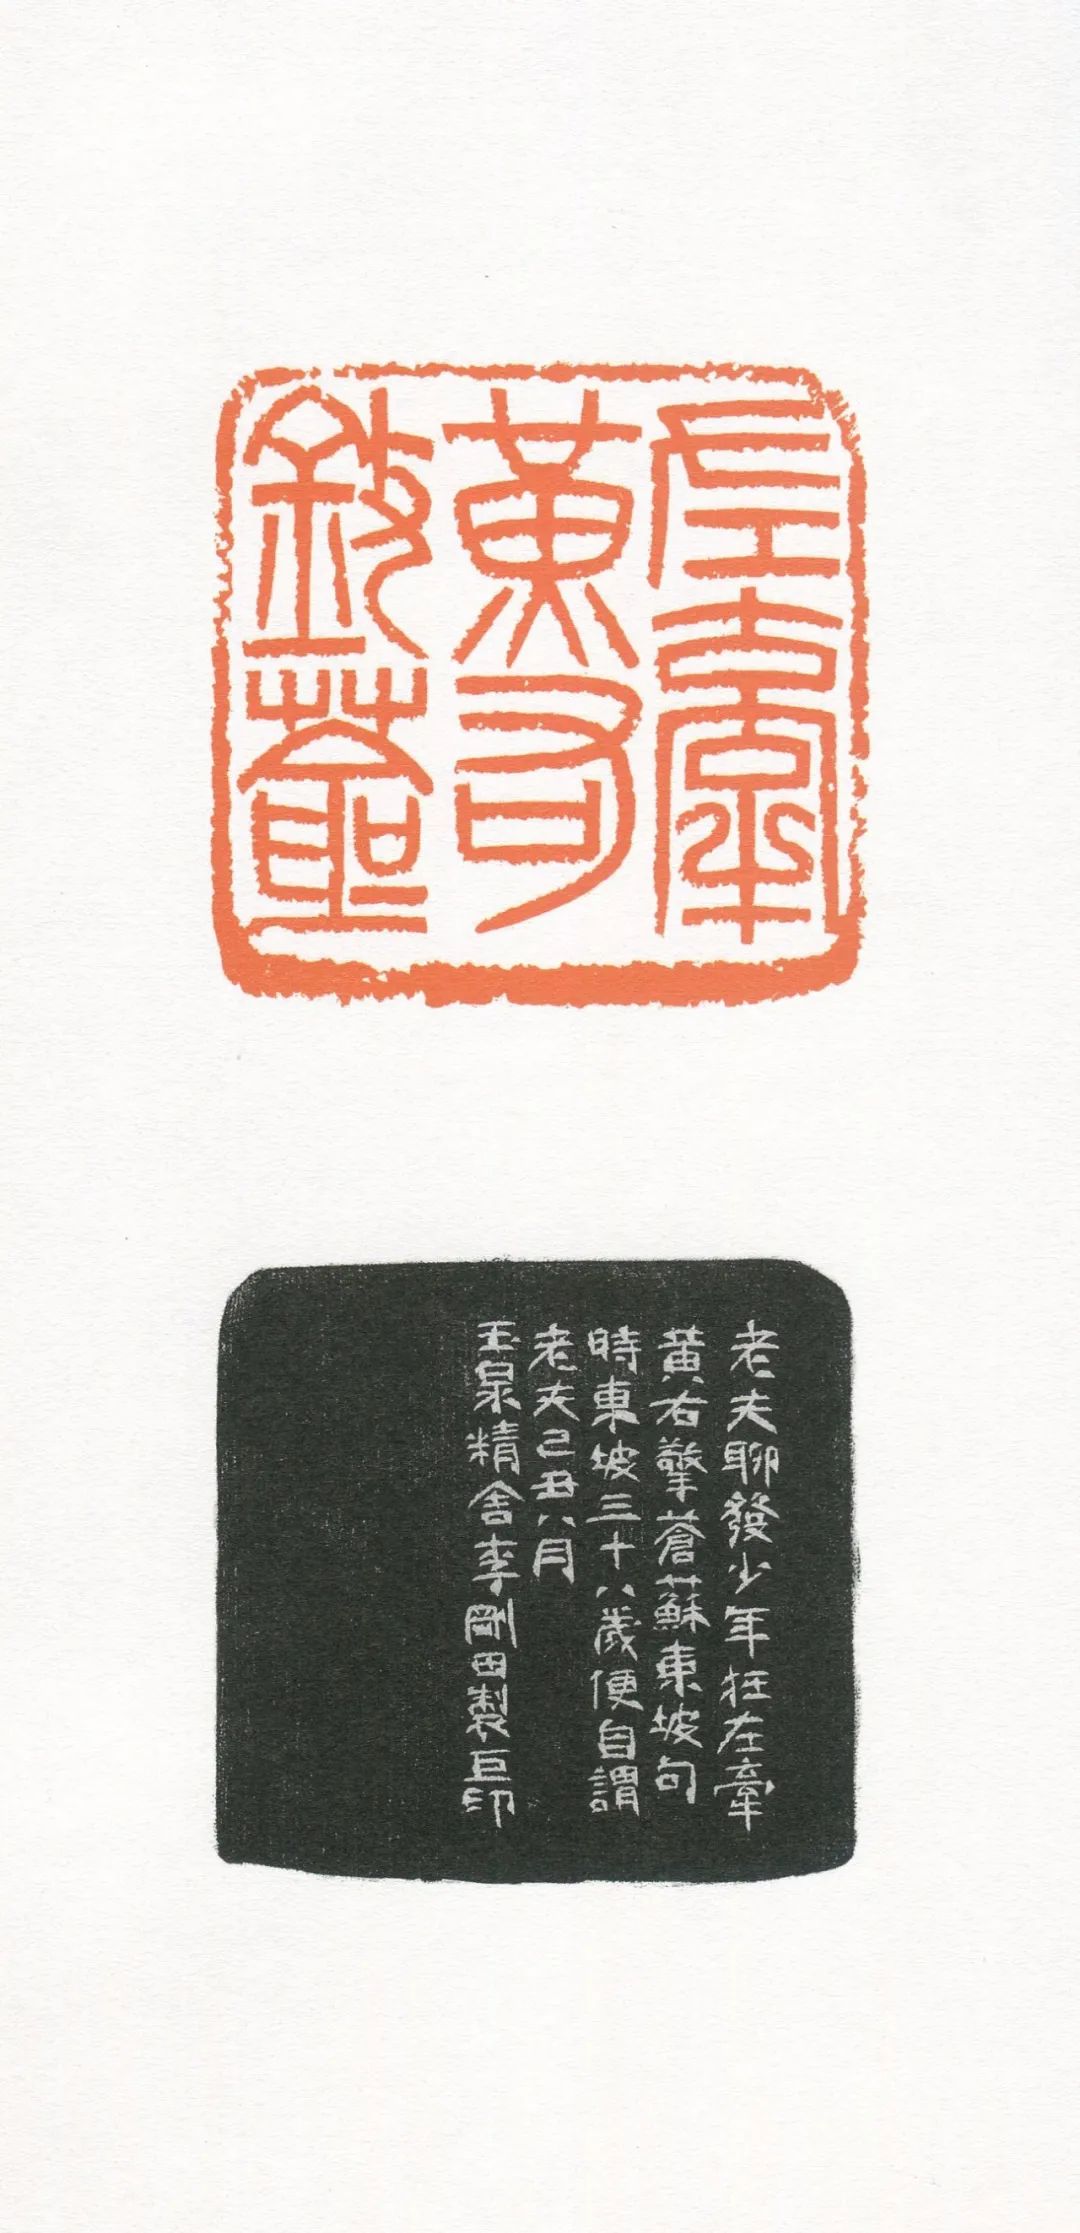 左牽
黃右
擎蒼
老夫聊發少年狂左牽
黃右擎蒼蘇東坡句
時東坡三十八歲便自謂
老夫己丑八月
玉泉精舍李剛田製巨印